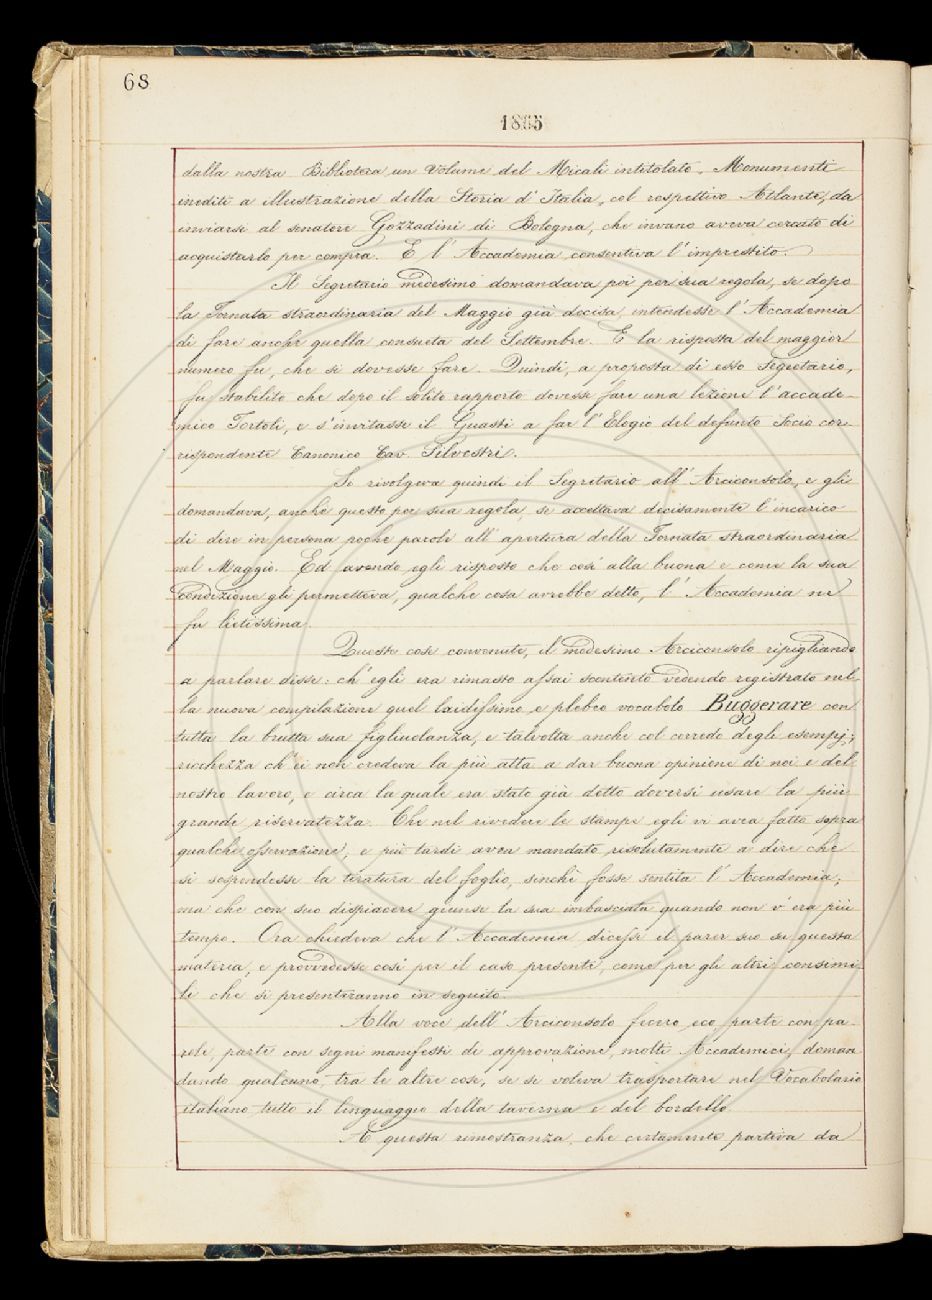 68
1865
dalla nostra Biblioteca un Volume del Micali intitolato. Monumenti
inediti a illustrazione della Storia d'Italia, col respettivo Atlante, da
inviarsi al senatore Gozzadini di Bologna, che invano aveva cercato di
acquistarlo per compra. E l'Accademia consentiva l'imprestito.
Il Segretario medesimo domandava poi per sua regola, se dopo
la Tornata straordinaria del Maggio già decisa, intendesse l'Accademia
di fare anche quella consueta del Settembre. E la risposta del maggior
numero fu, che si dovesse fare. Quindi, a proposta di esso Segretario,
fu stabilito che dopo il solito rapporto dovesse fare una lezione l'accade-
mico Tortoli, e s'invitasse il Guasti a far l'Elogio del defunto Socio cor-
rispondente Canonico Cav. Silvestri.
Si rivolgeva quindi il Segretario all'Arciconsolo, e gli
domandava, anche questo per sua regola, se accettava decisamente l'incarico
di dire in persona poche parole all'apertura della Tornata straordinaria
nel Maggio. Ed avendo egli risposto che così alla buona e come la sua
condizione gli permetteva, qualche cosa avrebbe detto, l'Accademia ne
fu lietissima.
Queste cose convenute, il medesimo Arciconsolo ripigliando
a parlare disse: ch'egli era rimasto assai scontento vedendo registrato nel-
la nuova compilazione quel laidissimo e plebeo vocabolo Buggerare con
tutta la brutta sua figliuolanza, e talvolta anche col corredo degli esempj;
ricchezza ch'ei non credeva la più atta a dar buona opinione di noi e del
nostro lavoro, e circa la quale era stato già detto doversi usare la più
grande riservatezza. Che nel rivedere le stampe egli vi avea fatto sopra
qualche osservazione, e più tardi avea mandato risolutamente a dire che
si sospendesse la tiratura del foglio, finchè fosse sentita l'Accademia;
ma che con suo dispiacere giunse la sua imbasciata quando non v'era più
tempo. Ora chiedeva che l'Accademia dicesse il parer suo su questa
materia, e provvedesse così per il caso presente, come per gli altri consimi-
li che si presenteranno in seguito.
Alla voce dell'Arciconsolo fecero eco, parte con pa-
role, parte con segni manifesti di approvazione, molti Accademici, doman
dando qualcuno, tra le altre cose, se si voleva trasportare nel Vocabolario
italiano tutto il linguaggio della taverna e del bordello.
A questa rimostranza, che certamente partiva da